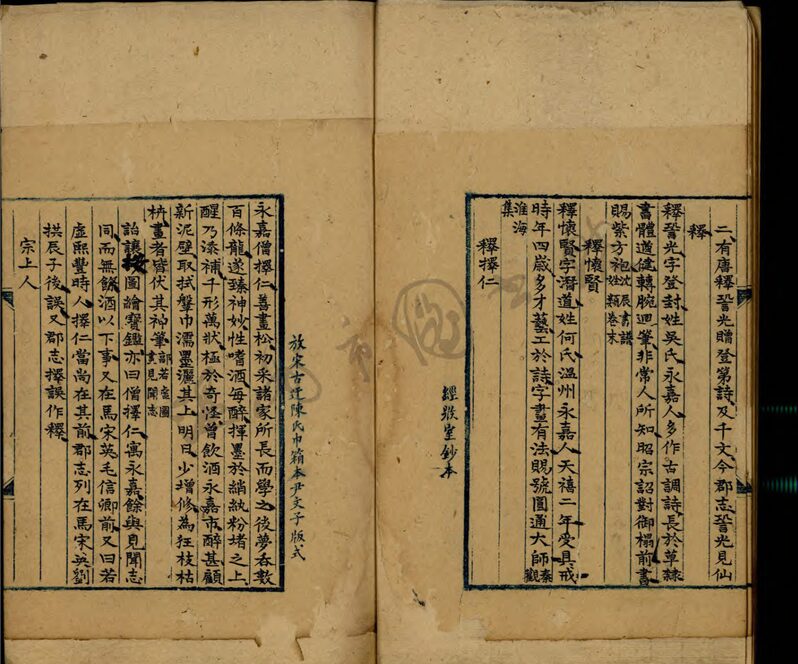 二有唐釋䛒光贈登第詩及千文今郡志䛒光見仙
釋
釋䛒光字登封姓吳氏永嘉人多作古調詩長於草隸
書體遒健轉腕迴筆非常人所知昭宗詔對御榻前書
賜紫方袍沈辰書譜姓類卷末
釋懷賢
釋懷賢字潛道姓何氏溫州永嘉人天禧二年受具戒
時年四歲多才藝工於詩字畫有法賜號圓通大師秦觀
淮海集
釋擇仁
經㣥室鈔本
放宋古迂陳氏巾箱本尹文子版式
永嘉僧擇仁善畫松初采諸家所長而學之後夢吞數
百條龍遂臻神妙性嗜酒每醉揮墨於綃紈粉堵之上
醒乃添補千形萬狀極於奇怪曾飲酒永嘉市醉甚顧
新泥壁取拭盤巾濡墨灑其上明日少增修為狂枝枯
枿畫者皆伏其神筆郭若虛圖畫見聞志
詒讓按圖繪寶鑑亦曰僧擇仁寓永嘉餘與見聞志
同而無飲酒以下事又在馬宋英毛信卿前又曰若
虛熙豐時人擇仁當尚在其前郡志列在馬宋英劉
拱辰子後誤又郡志擇誤作釋
宗上人